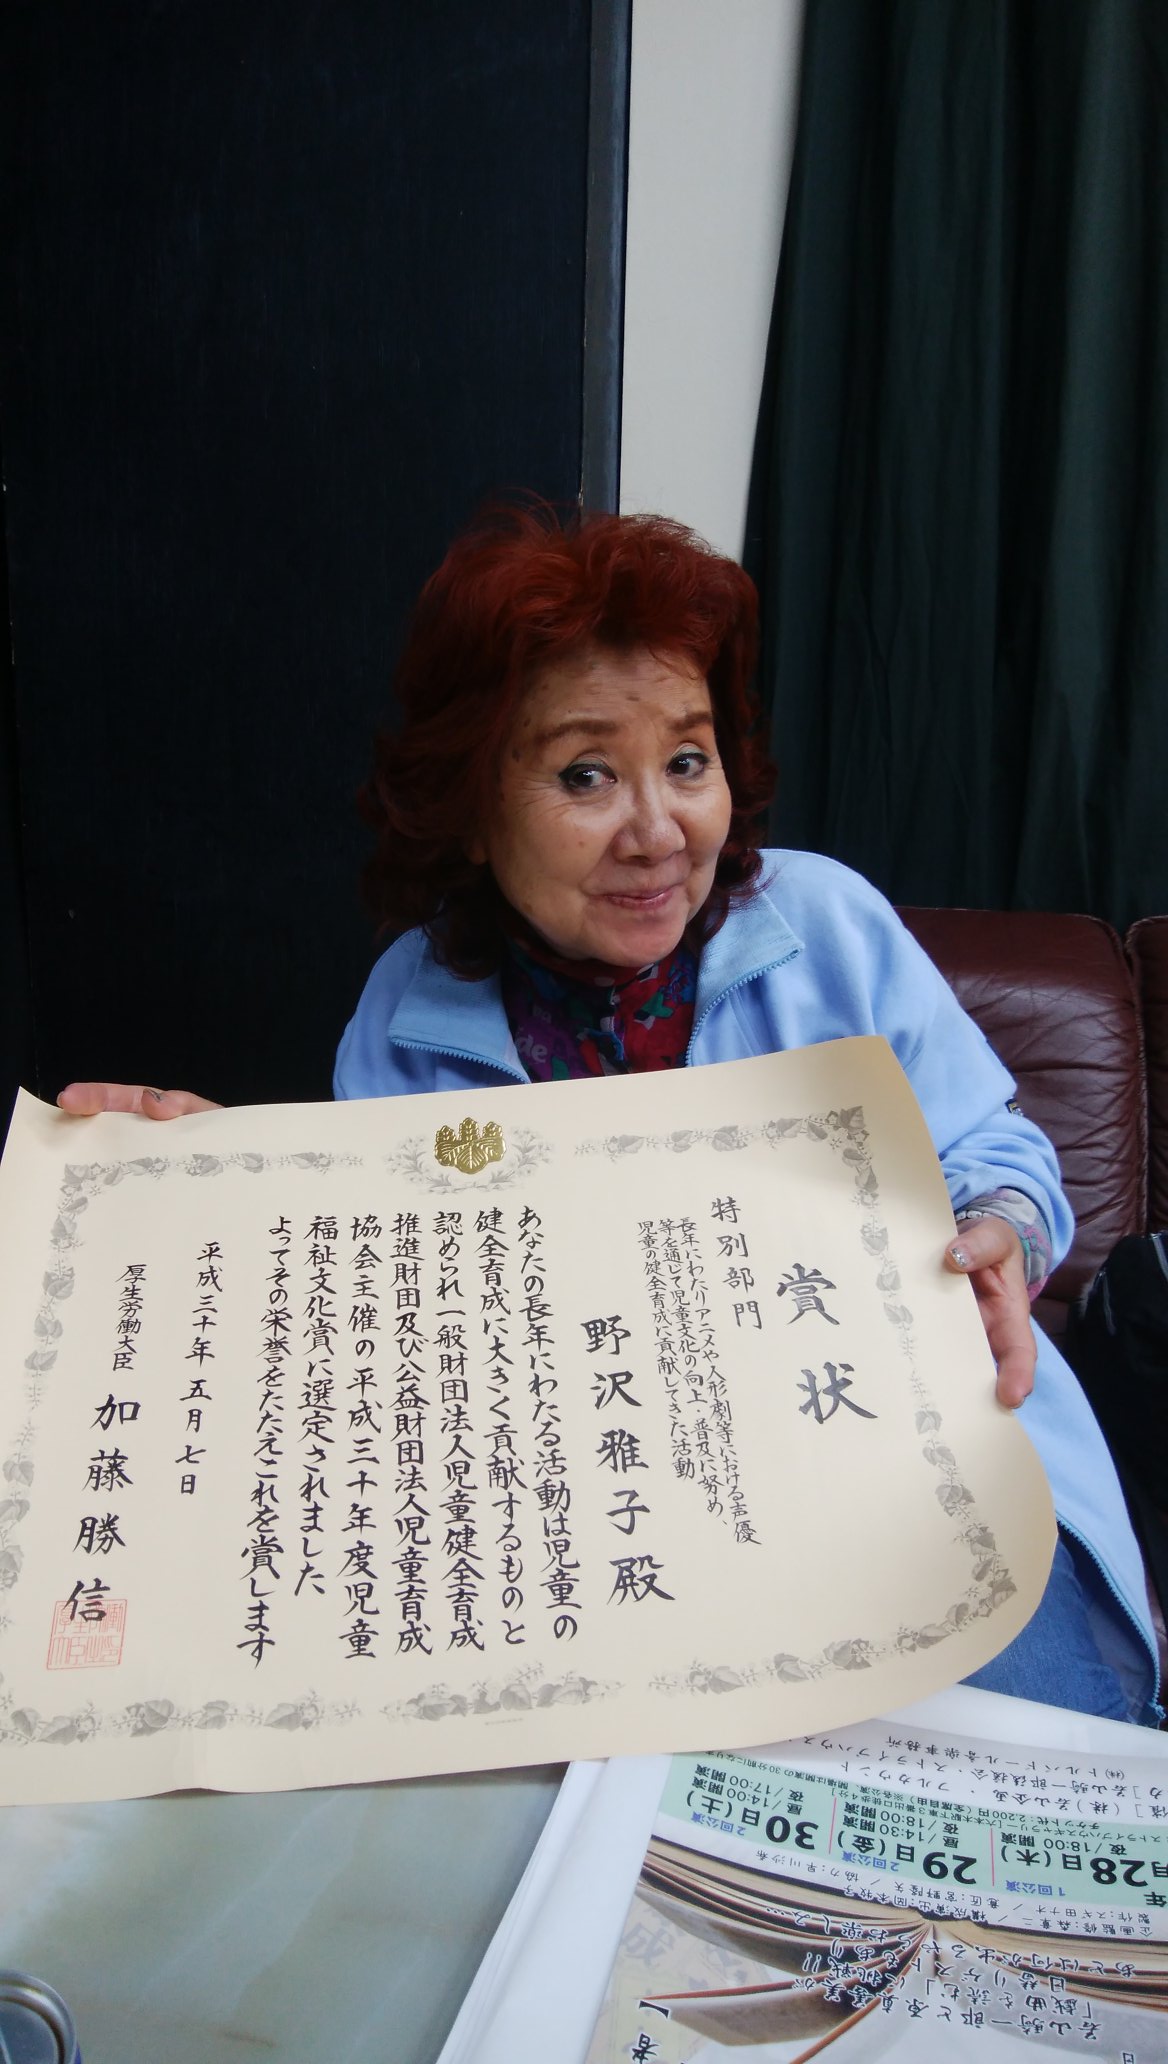 賞状
特別部門
長年にわたりアニメや人形劇等における声優
等を通じて児童文化の向上・普及に努め、
児童の健全育成に貢献してきた活動
野沢雅子殿
あなたの長年にわたる活動は児童の
健全育成に大きく貢献するものと
認められ一般財団法人児童健全育成
推進財団及び公益財団法人児童育成
協会主催の平成三十年度児童
福祉文化賞に選定されました
よってその栄誉をたたえこれを賞します
平成三十年五月七日
厚生労働大臣 加藤勝信
de
28日(木)
1回公演
夜/18:00開演
29日(金)
2回公演
昼/14:30開演
夜/18:00開演
30日(土)
2回公演
昼/14:00開演
夜/17:00開演